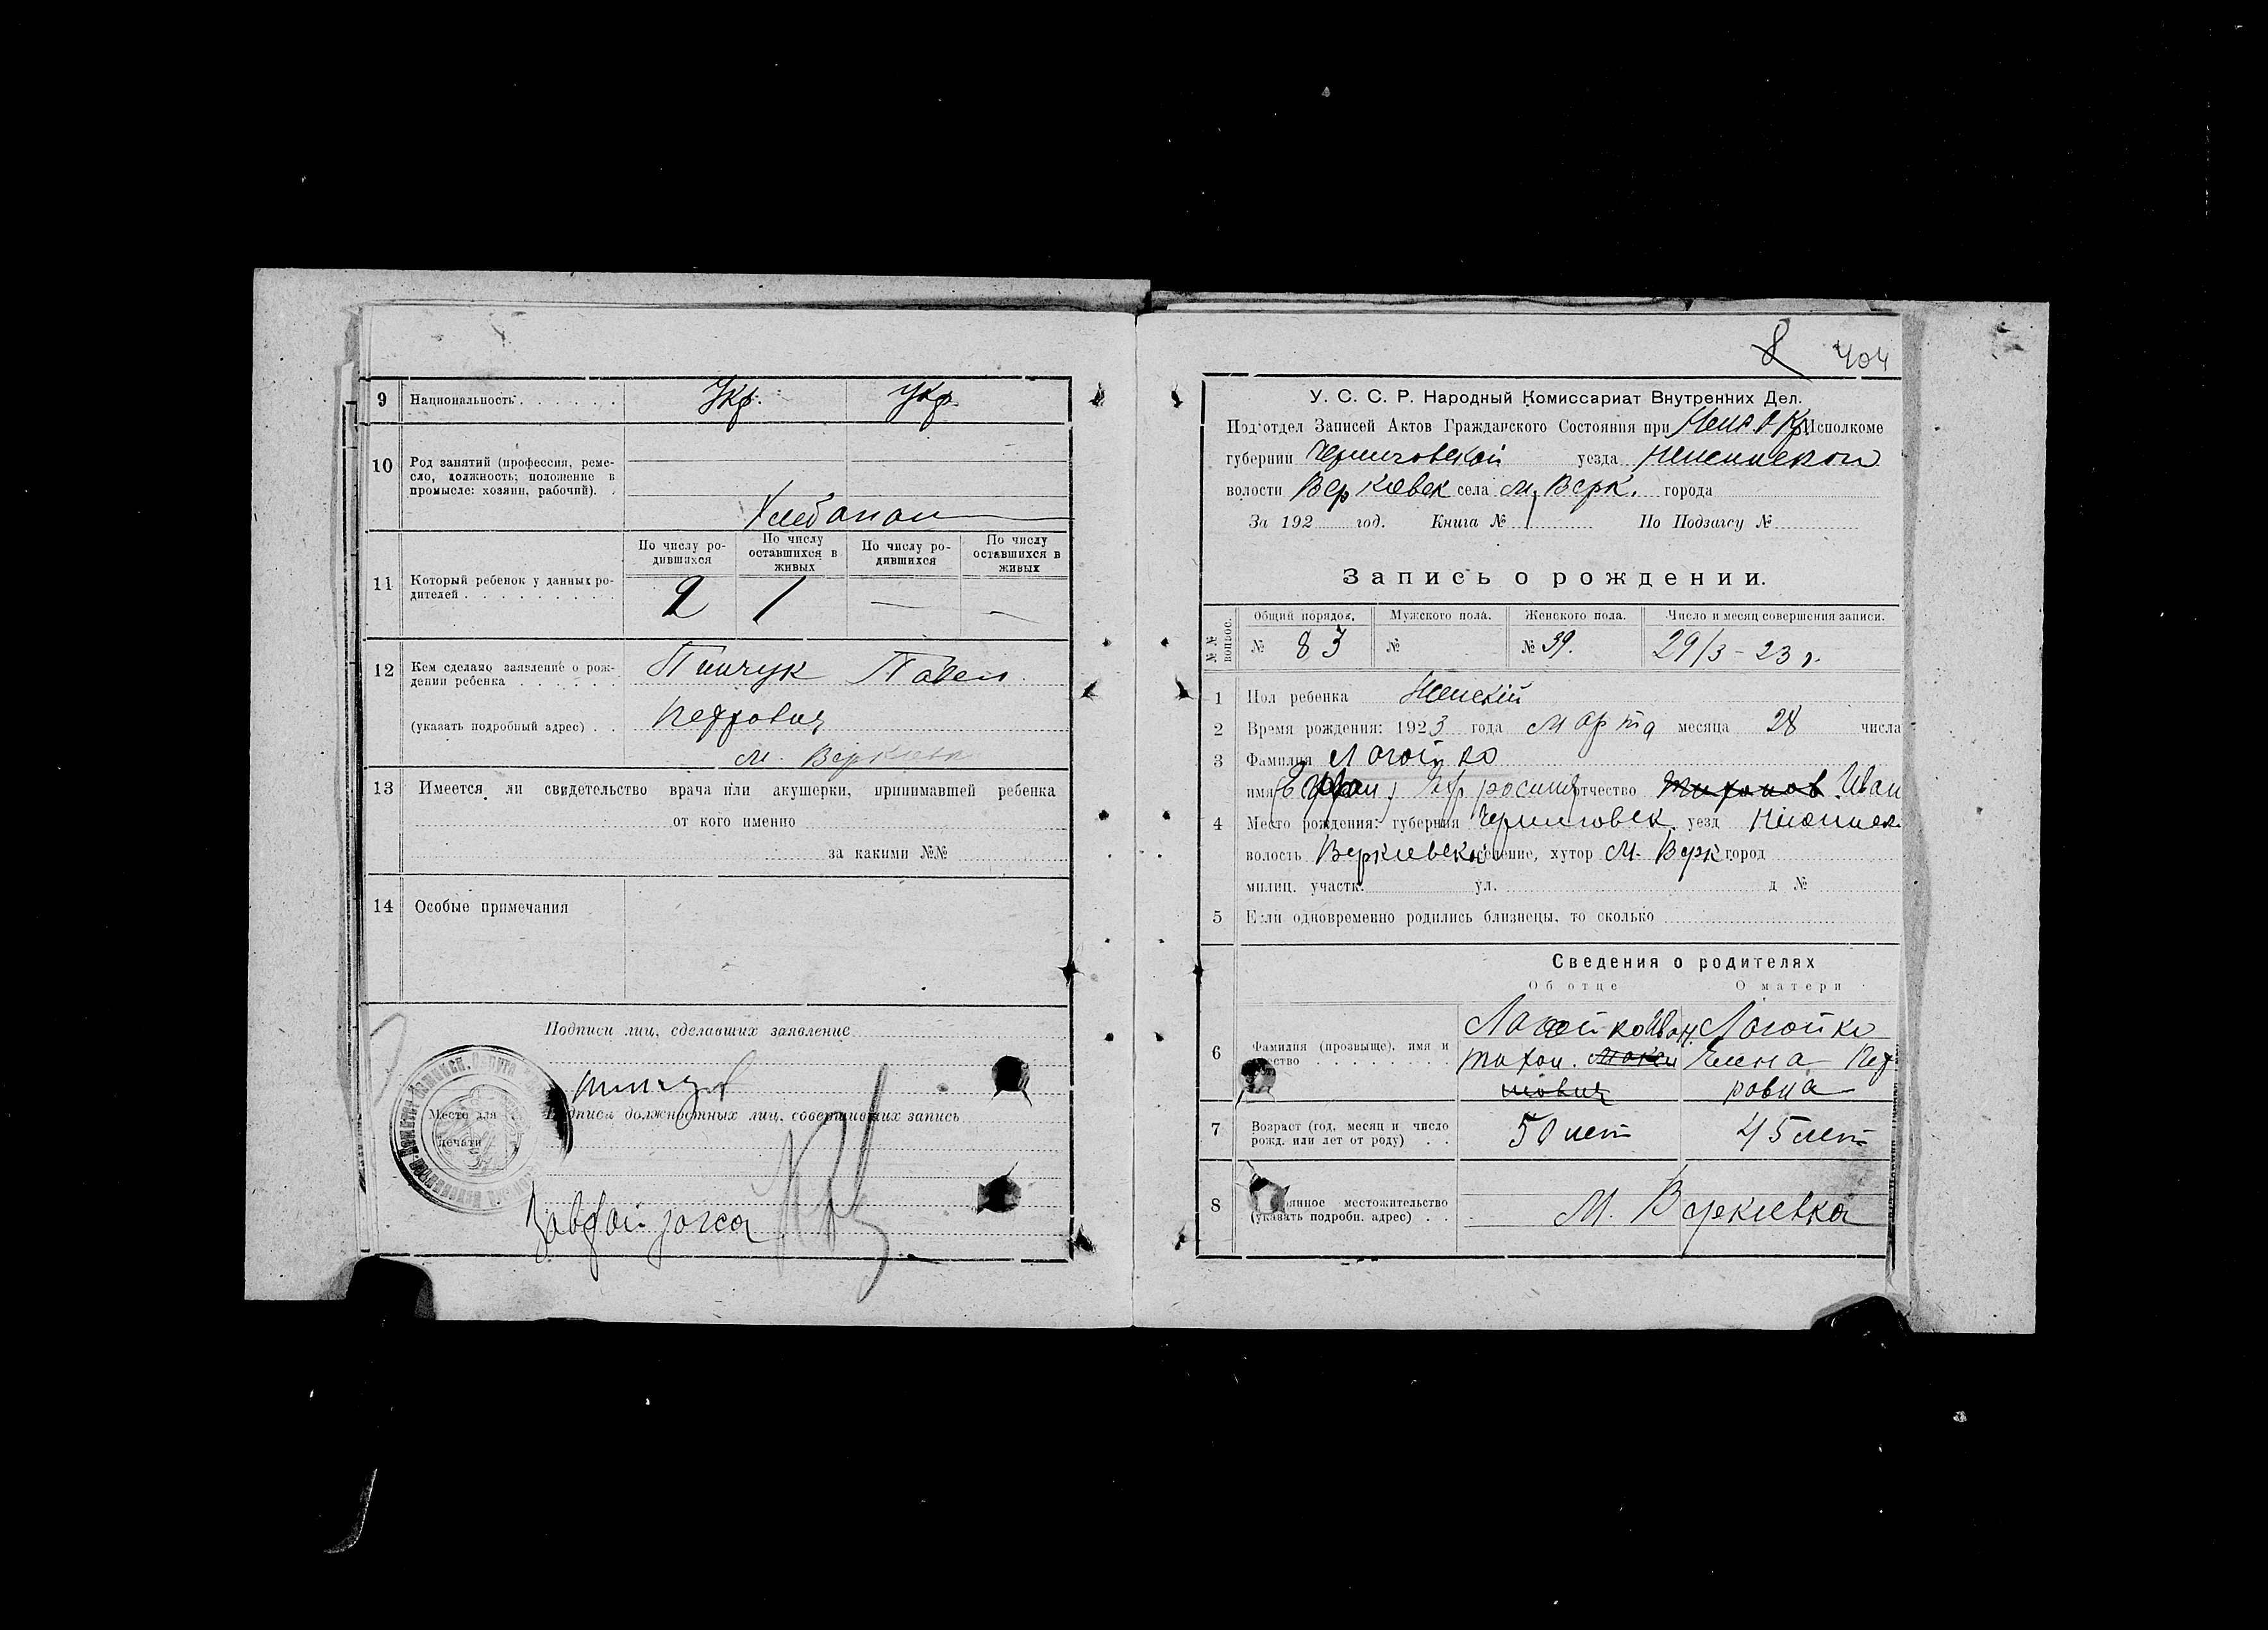 9 Национальность . . . . . . Укр. Укр.
10 Род занятий (профессия, реме-
сло, должность; положение в
промысле: хозяин, рабочий). .
По числу ро-
дившихся
По числу
оставшихся в
живых
По числу ро-
дившихся
По числу
оставшихся в
живых
11 Который ребенок у данных ро-
дителей . . . . . . . . . 2 1 — —
12 Кем сделано заявление о рож-
дении ребенка . . . . . . Пинчук Павел
(указать подробный адрес) . . Петрович
м.
13 Имеется ли свидетельство врача или акушерки, принимавшей ребенка
от кого именно
за какими №№
14 Особые примечания
Подписи лиц, сделавших заявление
Место для
печати
Подписи должностных лиц, совершивших запись
8 404
У. С. С. Р. Народный Комиссариат Внутренних Дел.
Подотдел Записей Актов Гражданского Состояния при Исполкоме
губернии Черниговской уезда Неженском
волости Веркиевск села м. Верк. города
За 192 год. Книга № По Подзагсу №
Запись о рождении.
№№ вопрос.
Общий порядок. Мужского пола. Женского пола. Число и месяц совершения записи.
№ 83 № № 39. 29/3 - 23 г.
1 Пол ребенка Женскій
2 Время рождения: 1923 года Марта месяца 28 числа
3 Фамилия Логойко
имя отчество Иван
4 Место рождения: губерния Черниговск. уезд
волость селение, хутор М. Верк город
милиц. участк. ул. д №
5 Если одновременно родились близнецы, то сколько
Сведения о родителях
Об отце О матери
6 Фамилия (прозвище), имя и
Логойко Иван Логойко
Тихон. Елена Пет
ровна
7 Возраст (год, месяц и число
рожд. или лет от роду) . . 50 лет 45 лет
8 местожительство
(указать подробн. адрес) . . М. Веркиевка